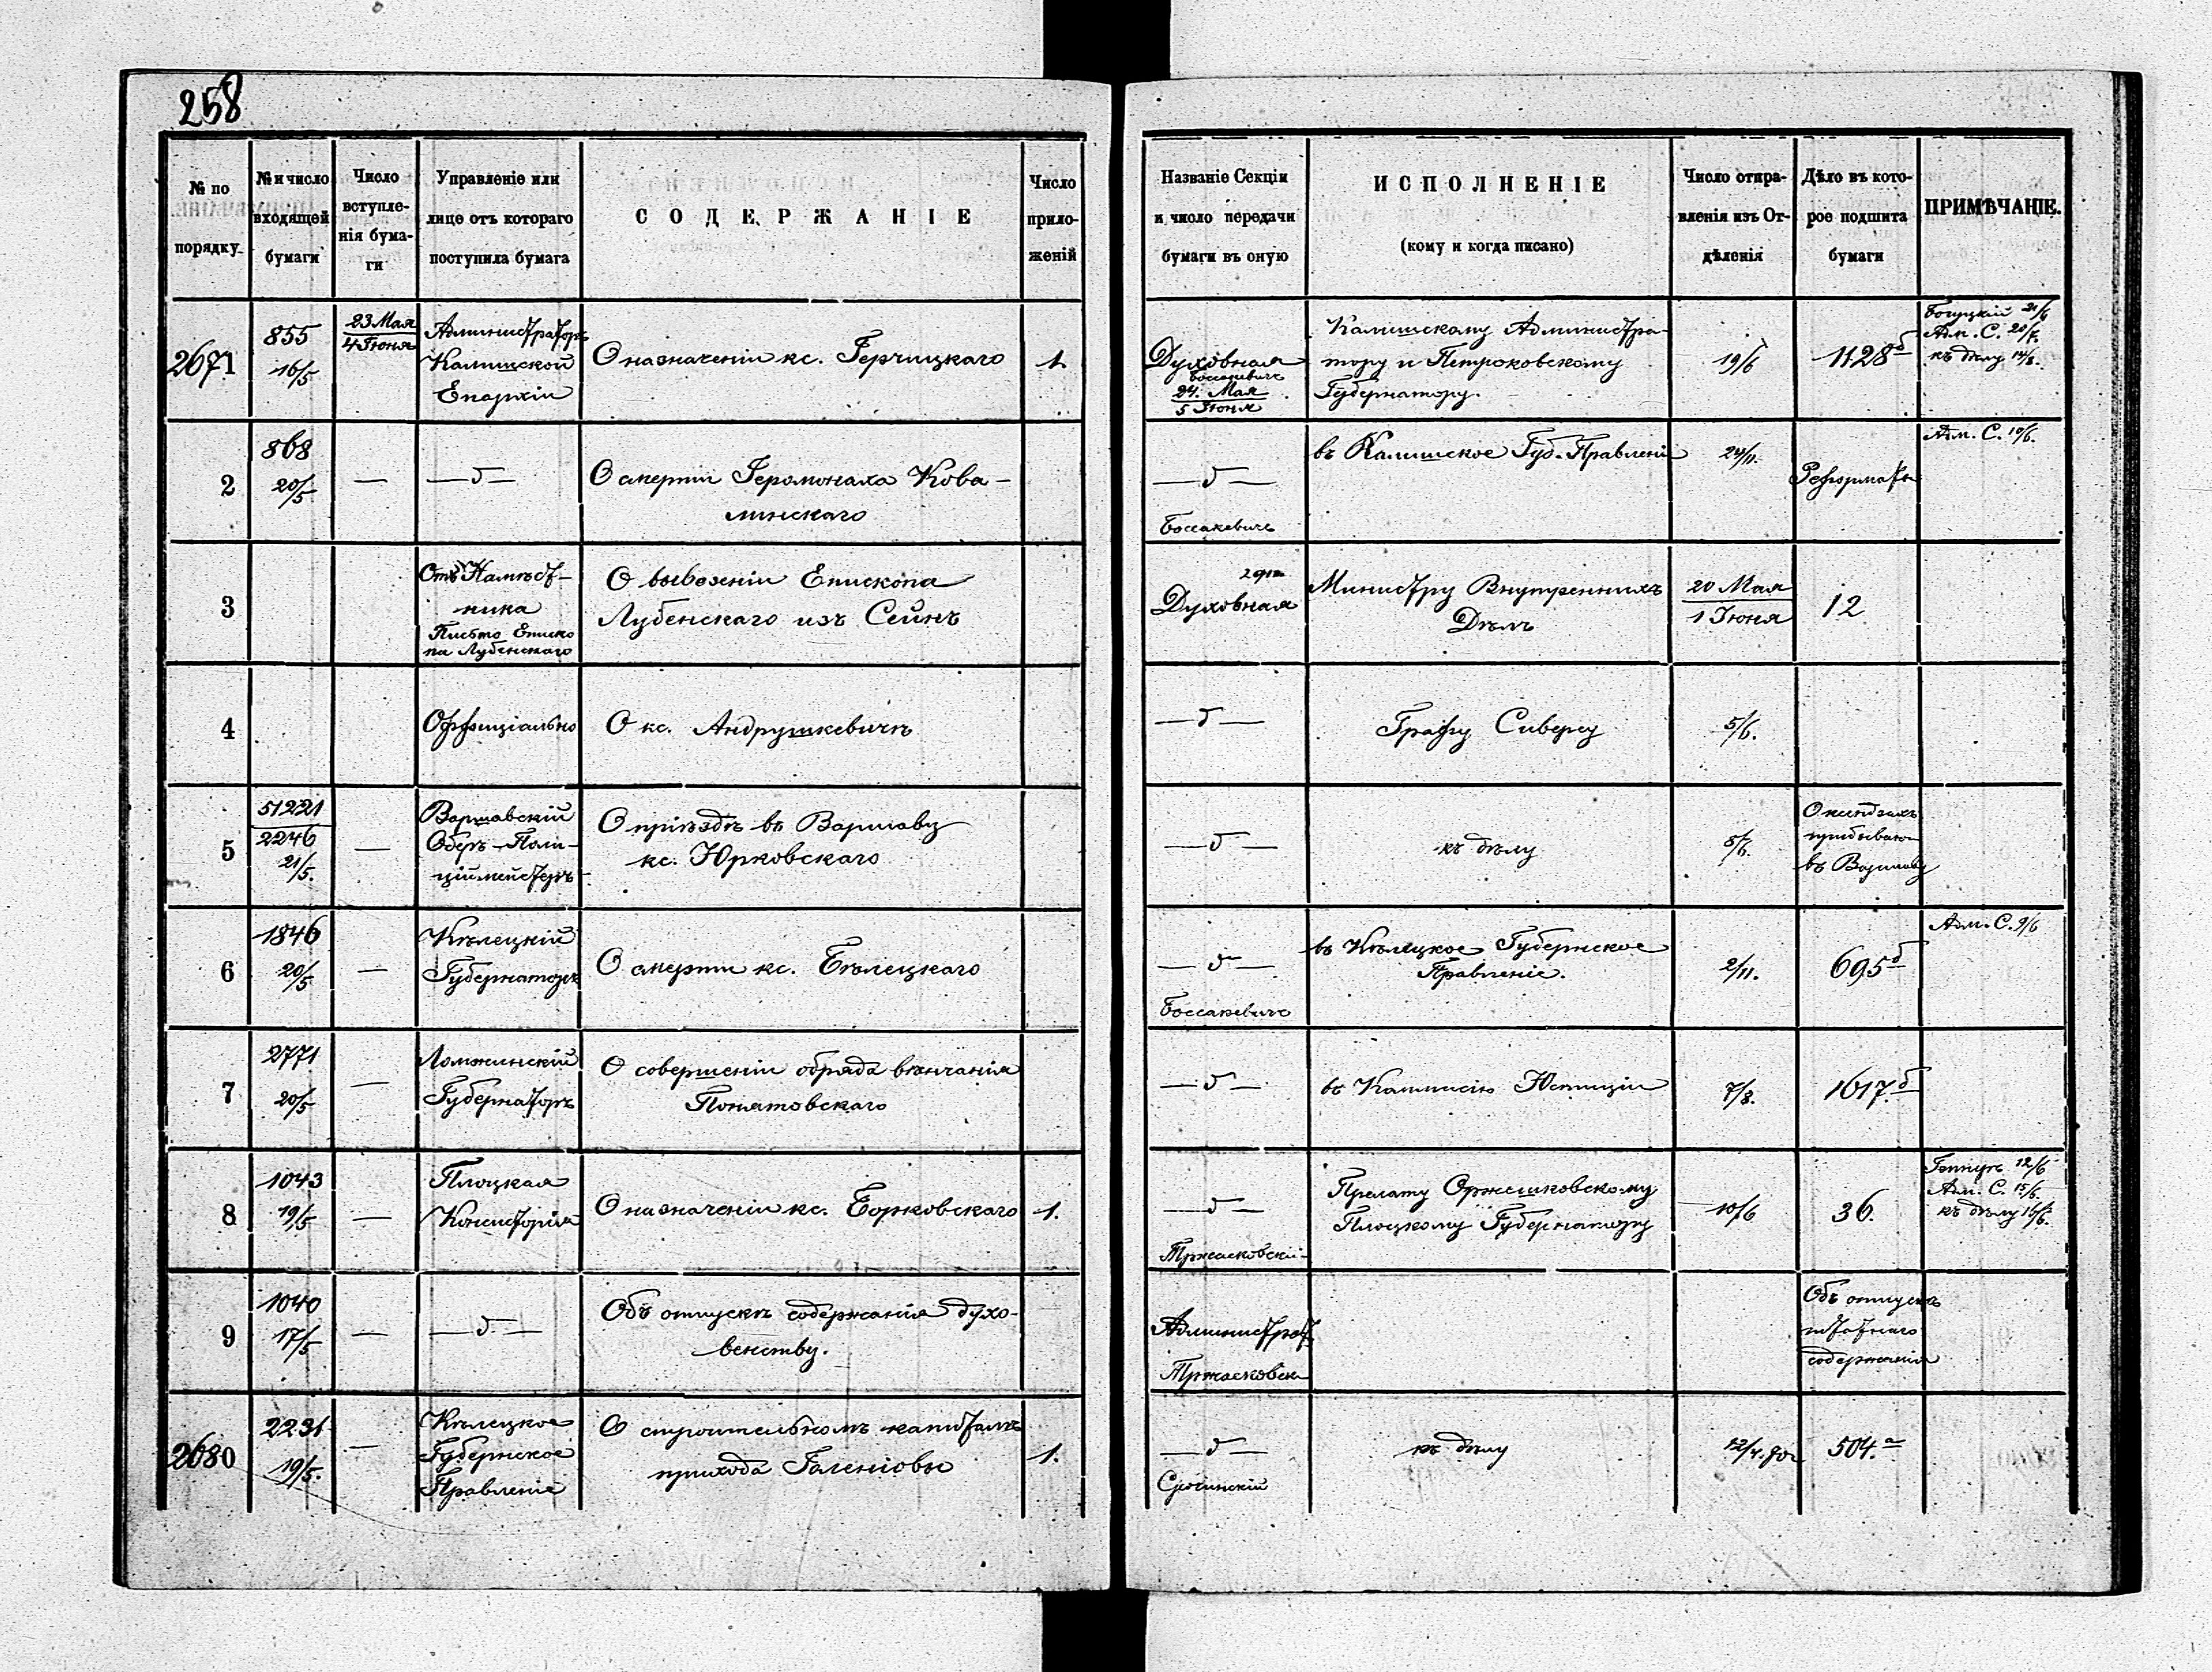 258
№ по порядку
№ и число входящей бумаги
Число вступле-нія бума-ги
Управленіе или лице отъ котораго поступила бумага
СОДЕРЖАНІЕ
Число прило-женій
Названіе Секціи и число передачи бумаги въ оную
ИСПОЛНЕНІЕ
(кому и когда писано)
Число отпра-вленія изъ От-дѣленія
Дѣло въ кото-рое подшита бумаги
ПРИМѢЧАНІЕ.
2671
855
16/5
23 Мая
4 Іюня
Администраторъ
Калишской
Епархіи
О назначеніи кс. Герчицкаго
1.
Духовная
Боссакевичъ
24. Мая
5 Іюня
Калишскому Администра-
тору и Петроковскому
Губернатору.
19/6
1128 б
21/6
Адм. С. 20/6.
къ дѣлу 14/8.
2
868
20/5
—
—δ—
О смерти Іеромонаха Кова-
линскаго
—δ—
Боссакевичъ
въ Калишское Губ. Правленіе
24/11.
Реформаты
Адм. С. 10/6.
3
Отъ Намѣст-
ника
Письмо Еписко
па Лубенскаго
О вывезеніи Епископа
Лубенскаго изъ Сейнъ
Духовная
Министру Внутреннихъ
Дѣлъ
20 Мая
1 Іюня
12
4
Оффиціально
О кс. Андрушкевичѣ
—δ—
Графу Сиверсу
5/6.
5
51221
2246
21/5.
—
Варшавскій
Оберъ-Поли-
ціймейстеръ
О пріѣздѣ въ Варшаву
кс. Юрковскаго
—δ—
къ дѣлу
8/6.
О ксендзахъ
прибываю
въ Варшаву
6
1846
20/5
—
Кѣлецкій
Губернаторъ
О смерти кс. Бѣлецкаго
—δ—
Боссакевичъ
въ Кѣлецкое Губернское
Правленіе.
2/11.
695 б
Адм. С. 9/6
7
2771
20/5
—
Ломжинскій
Губернаторъ
О совершеніи обряда вѣнчанія
Понятовскаго
—δ—
въ Коммисію Юстиціи
7/8.
1617 б
8
1043
19/5
—
Плоцкая
Консисторія
О назначеніи кс. Борковскаго
1.
—δ—
Тржасковскій
Прелату Оржешковскому
Плоцкому Губернатору
10/6
36.
12/6
Адм. С. 15/6.
къ дѣлу 16/6.
9
1040
17/5
—
—δ—
Объ отпускѣ содержанія духо-
венству.
Администрат
Тржасковск
Объ отпускѣ
штатнаго
содержанія
2680
2231
19/5.
—
Кѣлецкое
Губернское
Правленіе
О строительномъ капиталѣ
прихода Галеніовы
1.
—δ—
къ дѣлу
504. а